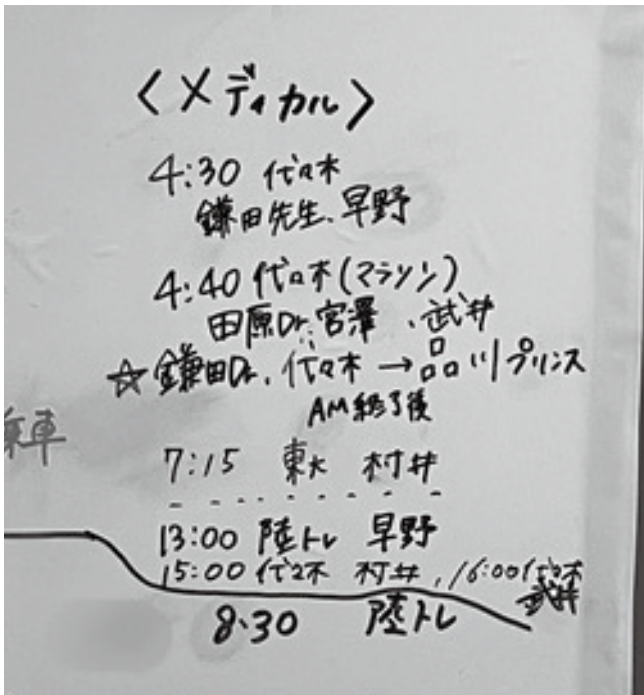 <メディカル>
4:30 代々木
鎌田先生、早野
4:40 代々木(マラソン)
田原Dr. 宮澤、武井
☆鎌田Dr. 代々木→品川プリンス
AM終了後
乗車
7:15 東大 村井
13:00 陸トレ 早野
15:00 代々木 村井, 16:00 代々木
武井
8:30 陸トレ